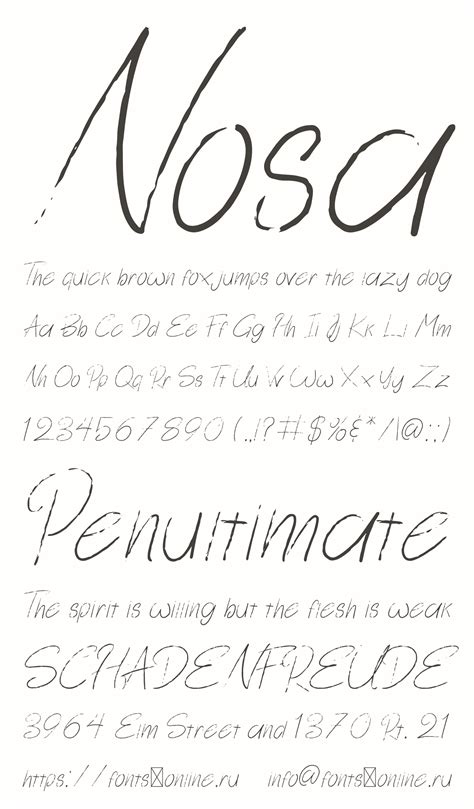 Nosa
The quick brown fox jumps over the lazy dog
Aa Bb Cc Dd Ee Ff Gg Hh Ii Jj Kk Ll Mm
Nn Oo Pp Qq Rr Ss Tt Uu Vv Ww Xx Yy Zz
1234567890 (.,!?#$%&*/|\@:;)
Penultimate
The spirit is willing but the flesh is weak
SCHADENFREUDE
3964 Elm Street and 1370 Rt. 21
https://fonts☒online.ru info@fonts☒online.ru